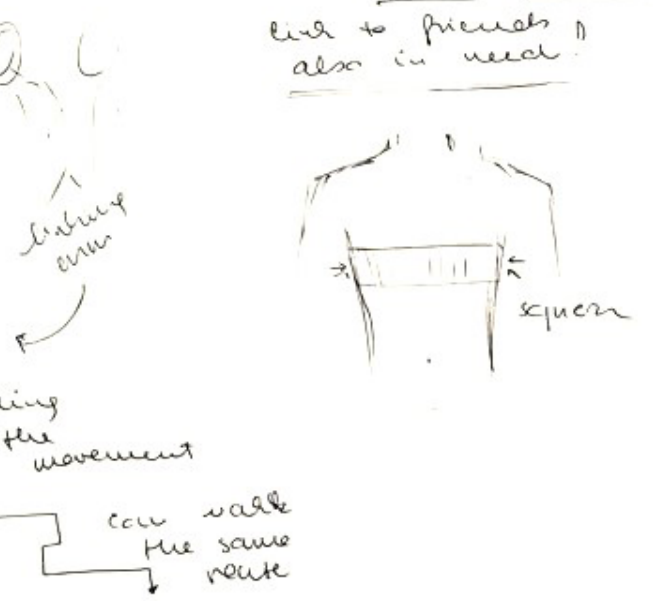 link to friends
also in need!
linking
arm
squeeze
ling
the
movement
can walk
the same
route